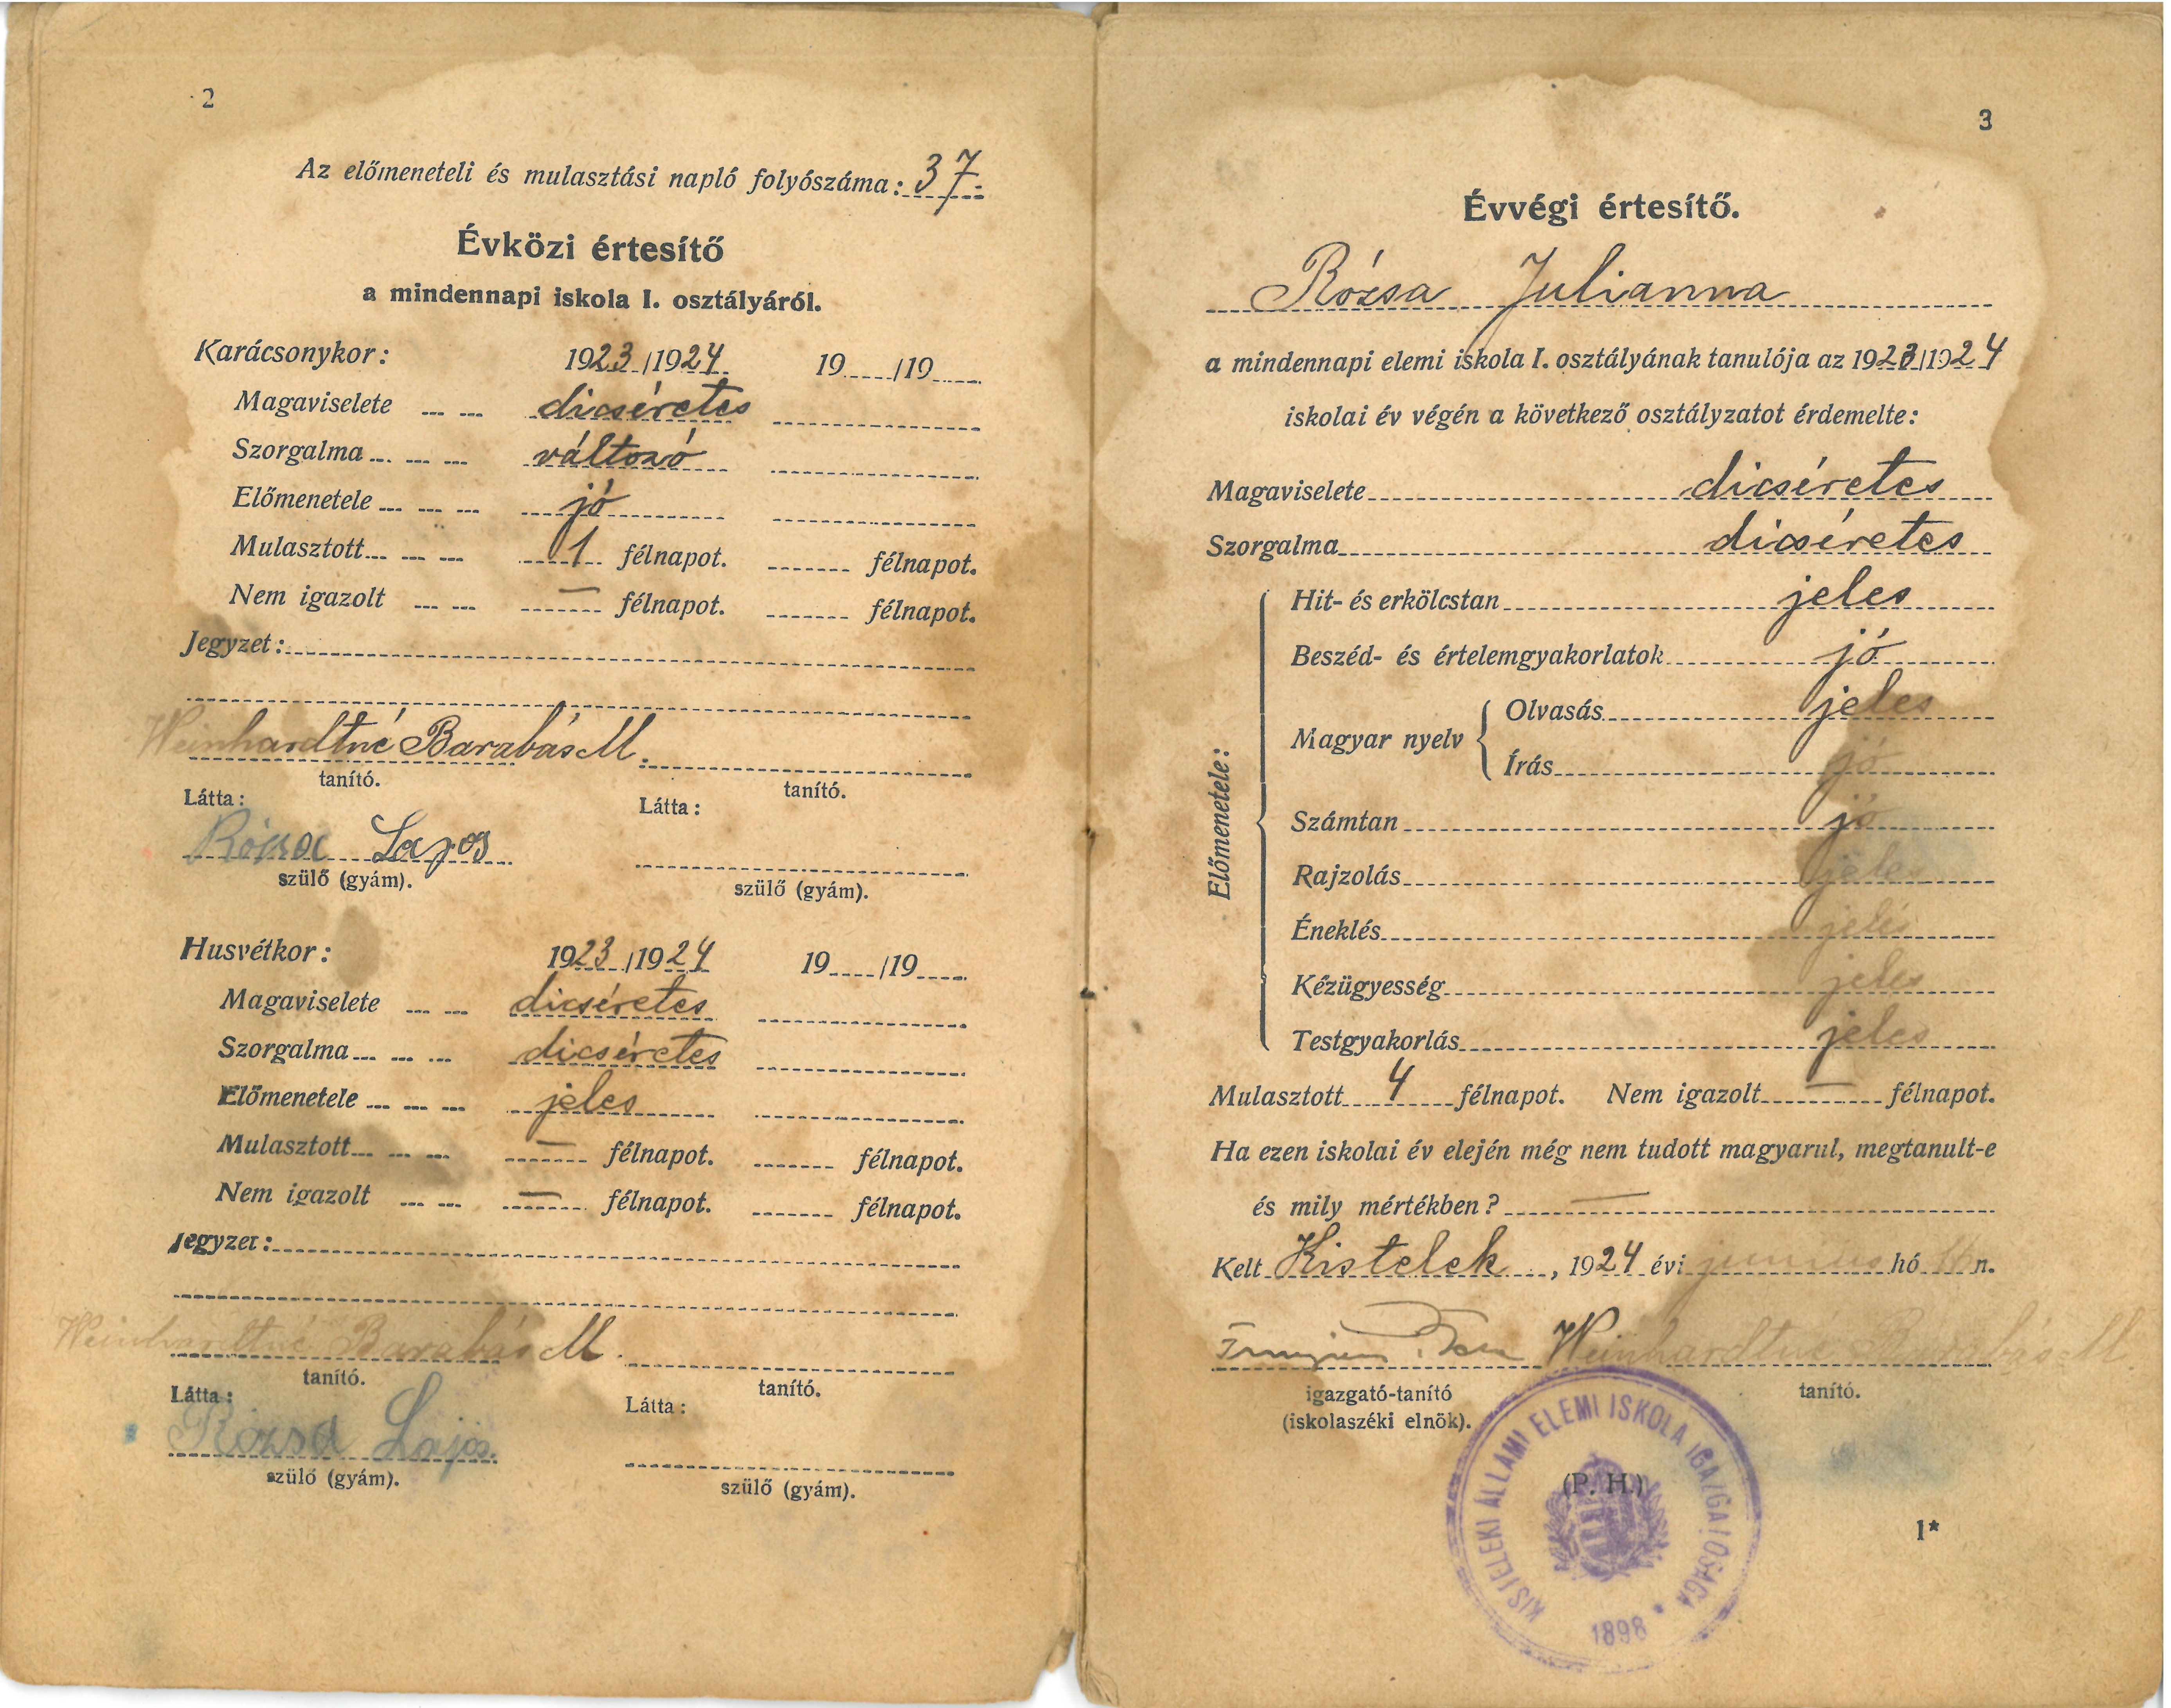 2
Az előmeneteli és mulasztási napló folyószáma: 37.
Évközi értesítő
a mindennapi iskola I. osztályáról.
Karácsonykor: 1923/1924 19 /19
Magaviselete dicséretes
Szorgalma változó
Előmenetele jó
Mulasztott 1 félnapot. félnapot.
Nem igazolt — félnapot. félnapot.
Jegyzet:
Weinhardtné Barabás M.
tanító. tanító.
Látta: Látta:
Rózsa Lajos
szülő (gyám). szülő (gyám).
Husvétkor: 1923/1924 19 /19
Magaviselete dicséretes
Szorgalma dicséretes
Előmenetele jeles
Mulasztott — félnapot. félnapot.
Nem igazolt — félnapot. félnapot.
Jegyzet:
Weinhardtné Barabás M.
tanító. tanító.
Látta: Látta:
Rózsa Lajos.
szülő (gyám). szülő (gyám).
3
Évvégi értesítő.
Rózsa Julianna
a mindennapi elemi iskola I. osztályának tanulója az 1923/1924
iskolai év végén a következő osztályzatot érdemelte:
Magaviselete dicséretes
Szorgalma dicséretes
Előmenetele:
Hit- és erkölcstan jeles
Beszéd- és értelemgyakorlatok jó
Magyar nyelv
Olvasás jeles
Írás jó
Számtan jó
Rajzolás jeles
Éneklés jeles
Kézügyesség jeles
Testgyakorlás jeles
Mulasztott 4 félnapot. Nem igazolt — félnapot.
Ha ezen iskolai év elején még nem tudott magyarul, megtanult-e
és mily mértékben? —
Kelt Kistelek, 1924 évi junius hó n.
Weinhardtné Barabás M.
igazgató-tanító tanító.
(iskolaszéki elnök).
KISTELEKI ÁLLAMI ELEMI ISKOLA IGAZGATÓSÁGA
(P. H.)
1898
1*